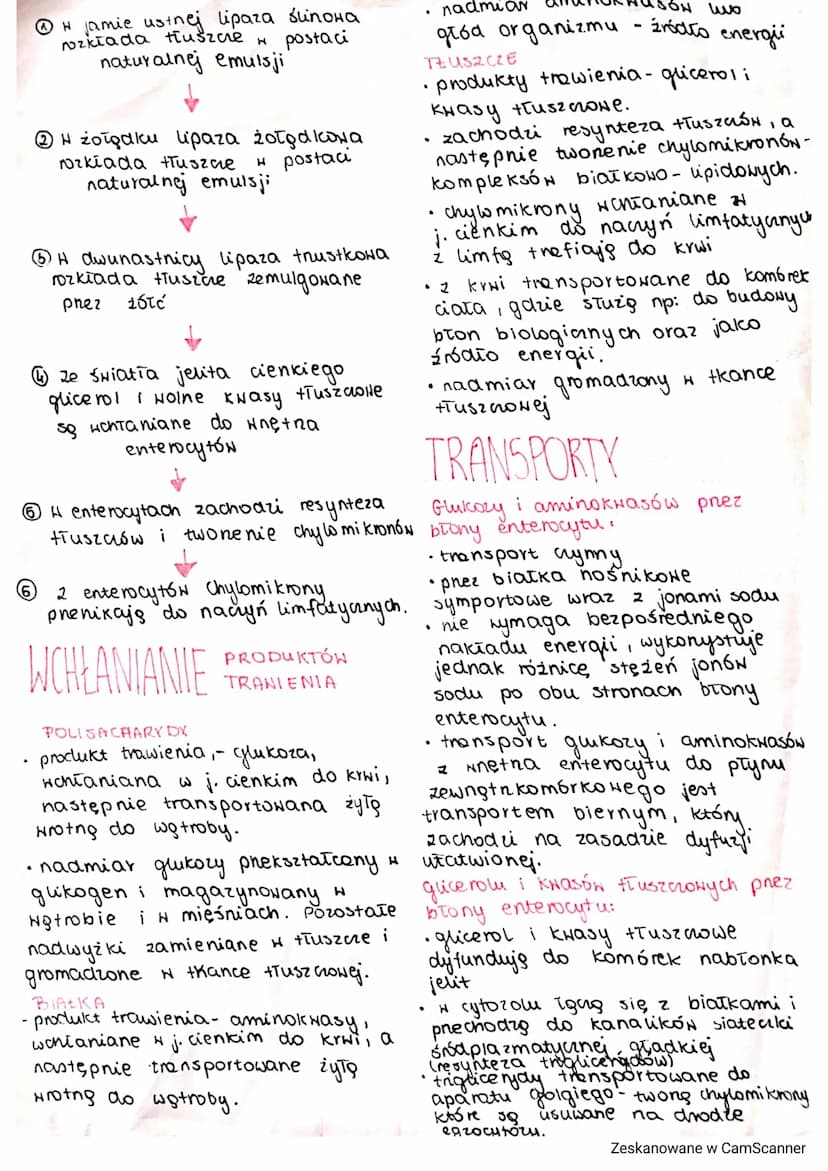 ① W jamie ustnej lipaza ślinowa
rozkłada tłuszcze w postaci
naturalnej emulsji
② W żołądku lipaza żołądkowa
rozkłada tłuszcze w postaci
naturalnej emulsji
③ W dwunastnicy lipaza trzustkowa
rozkłada tłuszcze zemulgowane
przez żółć
④ ze światła jelita cienkiego
glicerol i wolne kwasy tłuszczowe
są wchłaniane do wnętrza
enterocytów
⑤ W enterocytach zachodzi resynteza
tłuszczów i tworzenie chylomikronów
⑥ z enterocytów chylomikrony
przenikają do naczyń limfatycznych.
WCHŁANIANIE PRODUKTÓW
TRAWIENIA
POLISACHARYDY
• produkt trawienia,- glukoza,
wchłaniana w j. cienkim do krwi,
następnie transportowana żyłą
wrotną do wątroby.
• nadmiar glukozy przekształcany w
glikogen i magazynowany w
wątrobie i w mięśniach. Pozostałe
nadwyżki zamieniane w tłuszcze i
gromadzone w tkance tłuszczowej.
BIAŁKA
- produkt trawienia- aminokwasy,
wchłaniane w j. cienkim do krwi, a
następnie transportowane żyłą
wrotną do wątroby.
• nadmiar aminokwasów lub
głód organizmu - źródło energii
TŁUSZCZE
• produkty trawienia- glicerol i
kwasy tłuszczowe.
• zachodzi resynteza tłuszczów, a
następnie tworzenie chylomikronów-
kompleksów białkowo-lipidowych.
• chylomikrony wchłaniane w
j. cienkim do naczyń limfatycznych
z limfą trafiają do krwi
• z krwi transportowane do komórek
ciała, gdzie służą np: do budowy
błon biologicznych oraz jako
źródło energii.
• nadmiar gromadzony w tkance
tłuszczowej
TRANSPORTY
Glukozy i aminokwasów przez
błony enterocytu:
• transport czynny
• przez białka nośnikowe
symportowe wraz z jonami sodu
• nie wymaga bezpośredniego
nakładu energii, wykorzystuje
jednak różnicę stężeń jonów
sodu po obu stronach błony
enterocytu.
• transport glukozy i aminokwasów
z wnętrza enterocytu do płynu
zewnątrzkomórkowego jest
transportem biernym, który
zachodzi na zasadzie dyfuzji
ułatwionej.
glicerolu i kwasów tłuszczowych przez
błony enterocytu:
• glicerol i kwasy tłuszczowe
dyfundują do komórek nabłonka
jelit
• w cytozolu łączą się z białkami i
przechodzą do kanalików siateczki
śródplazmatycznej gładkiej
(resynteza triglicerydów)
• triglicerydy transportowane do
aparatu Golgiego- tworzą chylomikrony
które są usuwane na drodze
egzocytozy.
Zeskanowane w CamScanner